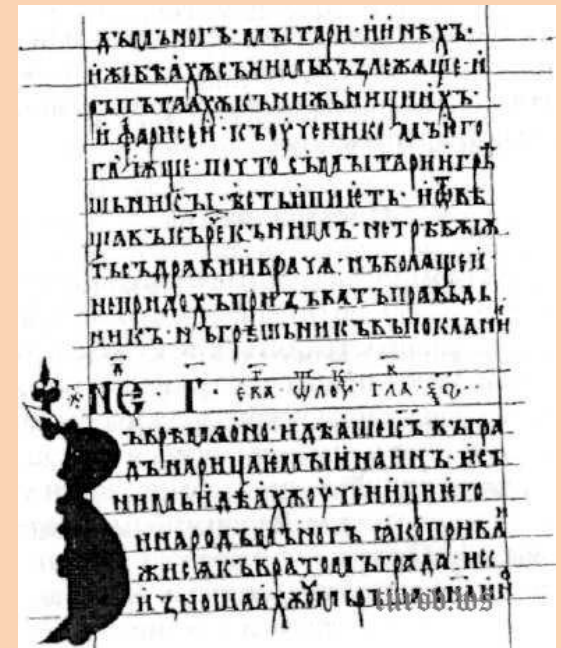 дъ мъногъ· мꙑтари· и инѣхъ·
иже бѣахѫ съ нимь възлежаще· и
ръпътаахѫ кънижьници ихъ·
и фарисеи· къ оученикомъ ѥго
гл҃ѭще· почто съ мꙑтари и грѣ
шьникꙑ· ѣсть и пиѥть· и ѿвѣ
щавъ іс҃ рече къ нимъ· не трѣбѹѭ
ть съдравии врача· нъ болѧщеи·
не придохъ призъватъ правьдь
никъ· нъ грѣшьникъ въ покаании
НЕ· Г҃· ева ѿ лоу гла
ъ врѣмѧ оно· идѣаше іс҃ въ гра
дъ нарицаѥмꙑи наинъ· и съ
нимь идѣахѫ оученици ѥго
и народъ мъногъ· ꙗко приближи
же сѧ къ вратомъ града· и се
изношаахѫ оумьръша
turov.ws